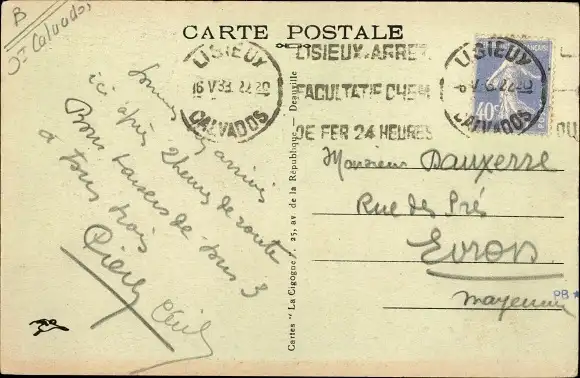 B
Ct Calvados
CARTE POSTALE
LISIEUX
16 V 33. 22 20
CALVADOS
LISIEUX. ARRET
FACULTATIF CHEM
DE FER 24 HEURES
LISIEUX
CALVADOS
40c
Sommes arrivés
ici après 2 heures de route
Bons baisers de tous 3
à tous trois
Cartes "La Cigogne", 25, av de la République — Deauville
Monsieur Dauxerre
Rue des Prés
Evron
Mayenne
PB